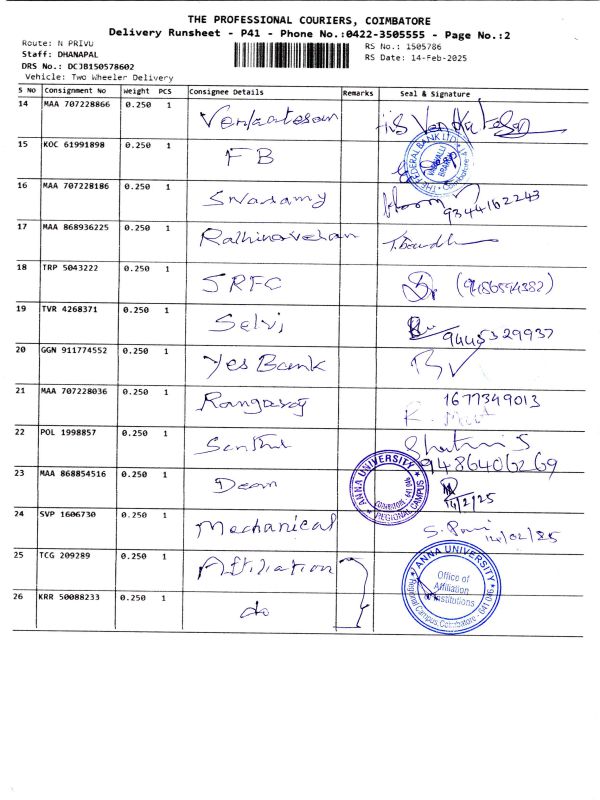 THE PROFESSIONAL COURIERS, COIMBATORE
Delivery Runsheet - P41 - Phone No.:0422-3505555 - Page No.:2
Route: N PRIVU
RS No.: 1505786
Staff: DHANAPAL
RS Date: 14-Feb-2025
DRS No.: DCJB150578602
Vehicle: Two Wheeler Delivery
S No Consignment No Weight PCS Consignee Details Remarks Seal & Signature
14 MAA 707228866 0.250 1 Venkatesan
15 KOC 61991898 0.250 1 FB THE FEDERAL BANK LTD
16 MAA 707228186 0.250 1 Sivasamy 9344162243
17 MAA 868936225 0.250 1 Rathinavelan
18 TRP 5043222 0.250 1 SRFC (9486594382)
19 TVR 4268371 0.250 1 Selvi 9445329937
20 GGN 911774552 0.250 1 Yes Bank
21 MAA 707228036 0.250 1 Rangaraj 1677349013
22 POL 1998857 0.250 1 Senthil 9486406269
23 MAA 868854516 0.250 1 Dean ANNA UNIVERSITY REGIONAL CAMPUS COIMBATORE 641 046 14/2/25
24 SVP 1606730 0.250 1 Mechanical 14/02/25
25 TCG 209289 0.250 1 Affiliation ANNA UNIVERSITY Office of Affiliation Institutions Regional Campus, Coimbatore - 641 046
26 KRR 50088233 0.250 1 do